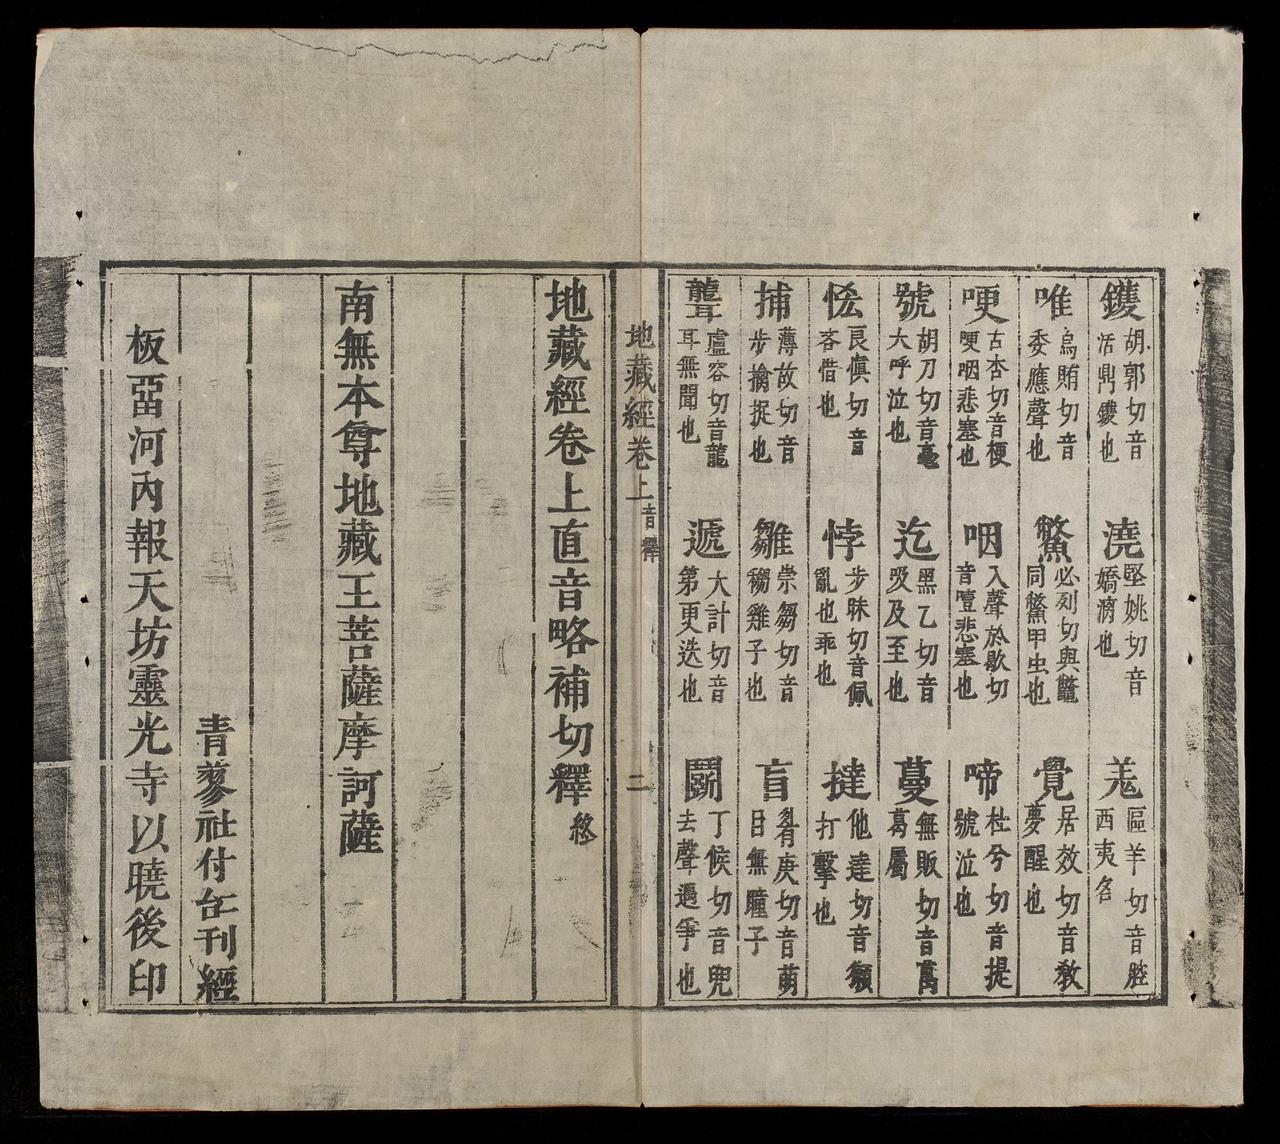 鑊 胡郭切音活鼎鑊也 澆 堅姚切音嬌漓也 羗 區羊切音腔西夷名
唯 烏賄切音委應聲也 鱉 必列切與鼈同鱉甲虫也 覺 居效切音教夢醒也
哽 古杏切音梗哽咽悲塞也 咽 入聲於歇切音噎悲塞也 啼 杜兮切音提號泣也
號 胡刀切音毫大呼泣也 迄 黑乙切音吸及至也 蔓 無販切音萬葛屬
恡 良慎切音吝惜也 悖 步昧切音佩亂也乖也 撻 他達切音獺打擊也
捕 薄故切音步擒捉也 雛 崇芻切音穆雞子也 盲 眉庚切音萌目無瞳子
聾 盧容切音龍耳無聞也 遞 大計切音第更迭也 鬭 丁候切音兜去聲遇爭也
地藏經卷上 音釋 二
地藏經卷上直音略補切釋 終
南無本尊地藏王菩薩摩訶薩
青蓼社付在刊經
板畱河內報天坊靈光寺以曉後印